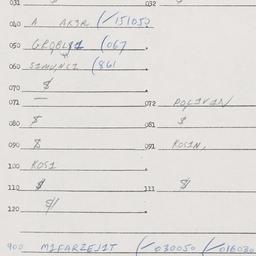 031 032
040 A AKIR (/151050
050 GROBLJI (067
060 SIMUNCI (861
070 $
071 — 072 POLIVAN
080 $ 081 $
090 8 091 KOSIN,
100 KOSI
110 $ 111 $
120 $/
900 MIFARZEJIT (/030050 /016030